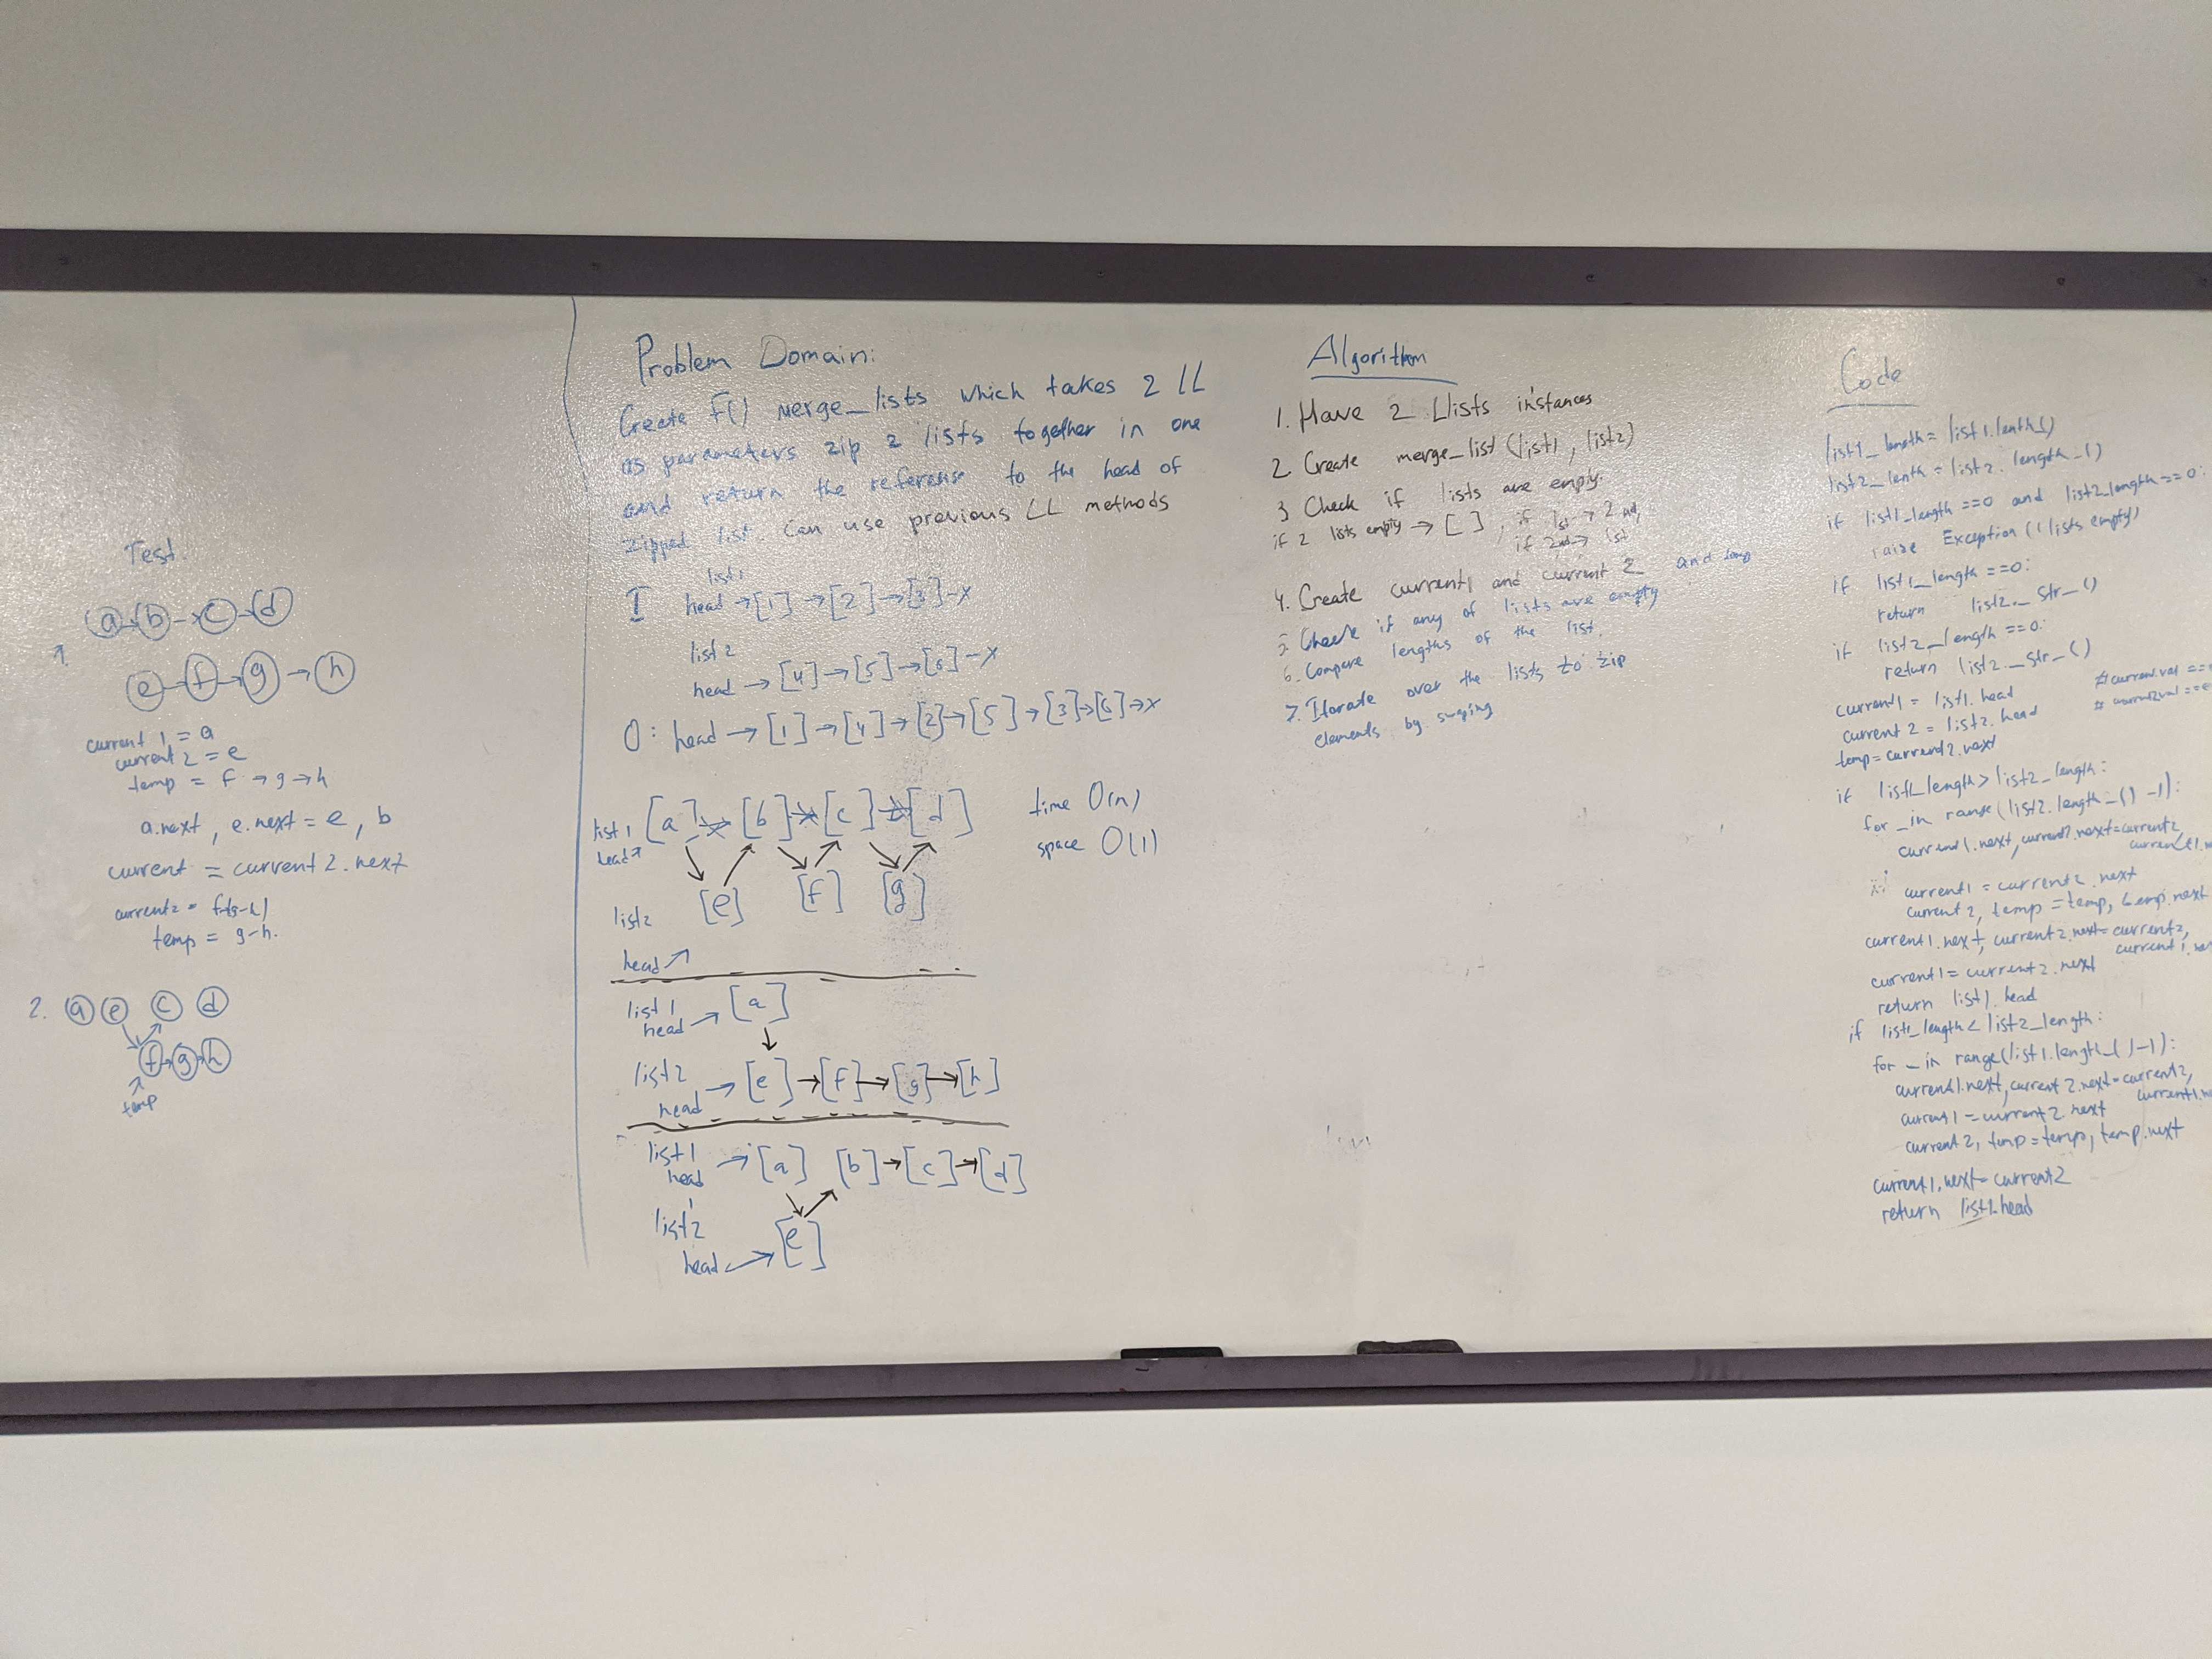 Test.
a b c d
1.
e f g h
current 1 = a
current 2 = e
temp = f → g → h
a.next, e.next = e, b
current = current 2. next
current2 =
temp = g-h.
2. a e c d
f g h
temp
Problem Domain:
Create F() merge_lists which takes 2 LL
as parameters zip 2 lists together in one
and return the referense to the head of
zipped list. Can use previous LL methods
list1
I head → [1] → [2] → [3] - x
list 2
head → [4] → [5] → [6] - x
O: head → [1] → [4] → [2] → [5] → [3] → [6] → x
list 1 [a] [b] [c] [d]
head
time O(n)
space O(1)
list2 [e] [f] [g]
head
list 1
head → [a]
list2
head → [e] → [f] → [g] → [h]
list1
head → [a] [b] → [c] → [d]
list2
head → [e]
Algorithm
1. Have 2 Llists instances
2. Create merge_list (list1, list2)
3 Check if lists are empty.
if 2 lists empty → [ ], if 1st → 2nd,
if 2nd → 1st
4. Create current1 and current 2 and
5 Check if any of lists are empty
6. Compare lengths of the list.
7. Itorate over the lists to zip
elements by swaping
Code
list1_length = list1.lenth_()
list2_lenth = list2. length_()
if list1_length ==0 and list2_length ==0:
raise Exception ( lists empty)
if list1_length ==0:
return list2._str_()
if list2_length ==0:
return list2._str_()
current1 = list1. head
# current.val ==
current 2 = list2. head
temp = current2.next
if list1_length > list2_length:
for _ in range (list2.length_() -1):
current1.next, current2.next = current2,
current1.
current1 = current2 .next
current 2, temp = temp, temp.next
current1.next, current2.next = current2,
current 1.
current1 = current2 .next
return list1. head
if list1_length < list2_length:
for _ in range(list1.length_( )-1):
current1.next, current 2.next = current2,
current1.
current1 = current2.next
current 2, tmp = temp, temp.next
current1.next = current2
return list1.head